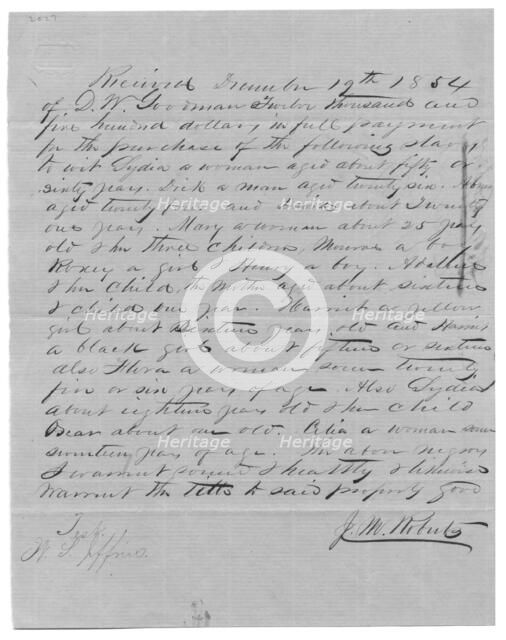 2027
Received December 19th 1854
of D. W. Goodman Twelve thousand and
five hundred dollars in full payment
for the purchase of the following slaves
to wit Lydia a woman aged about fifty or
sixty years. Dick a man aged twenty six.
aged twenty and about Twenty
one years. Mary a woman about 25 years
old & her three children, Monroe a boy
Roxey a girl & Henry a boy.
& her child, the Mother aged about sixteen
& child one year. Harriet a yellow
girl about sixteen years old and Harriet
a black girl about fifteen or sixteen
also Flora a woman some twenty
five or six years of age. Also Lydia
about eighteen years old & her child
about one old. Celia a woman some
seventeen years of age. The above negroes
I warrant sound & healthy & likewise
warrant the title to said property good
J. M. Roberts
Test.
W. S.
Heritage
Heritage
Heritage
Heritage
Heritage
Heritage
Heritage
Heritage
©